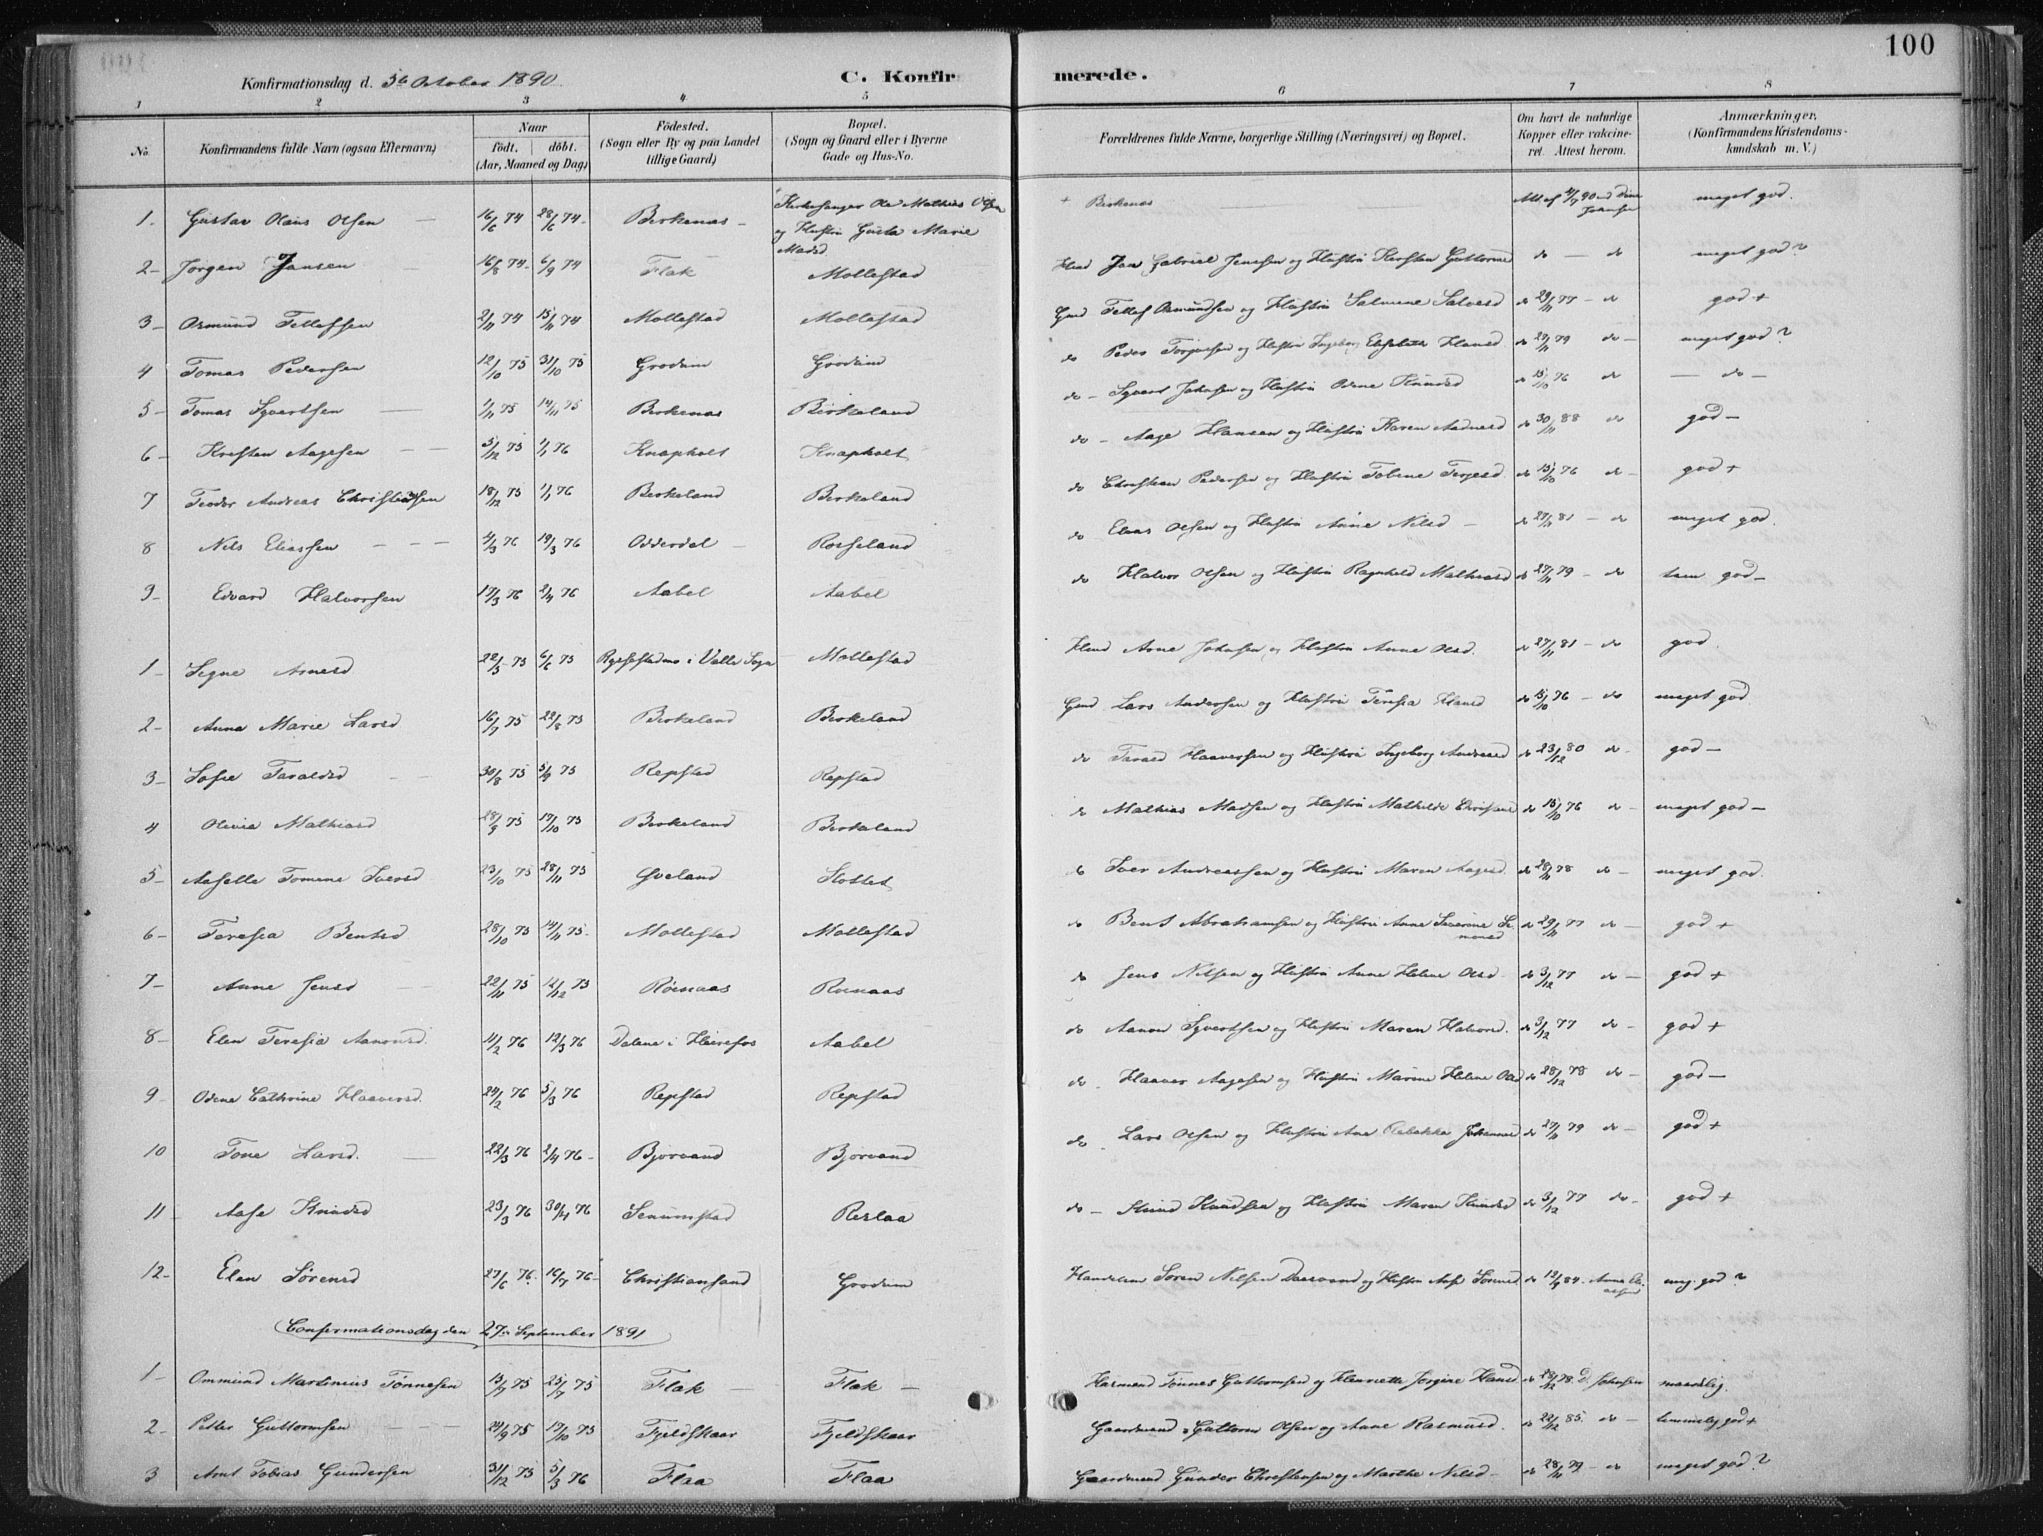 100
Konfirmationsdag d. 5te October 1890.
C. Konfirmerede.
1 2 3 4 5 6 7 8
No.
Konfirmandens fulde Navn (ogsaa Efternavn)
Naar
født. døbt.
(Aar, Maaned og Dag)
Fødested.
(Sogn eller By og paa Landet
tillige Gaard)
Bopæl.
(Sogn og Gaard eller i Byerne
Gade og Hus-No.
Forældrenes fulde Navne, borgerlige Stilling (Næringsvei) og Bopæl.
Om havt de naturlige
Kopper eller vakcine-
ret. Attest herom.
Anmærkninger,
(Konfirmandens Kristendoms-
kundskab m. V.)
1- Gustav Olaus Olsen 16/6 74 28/6 74 Birkenas Kirkesanger Ole Mathias Olsen og Hustru Gusta Marie Madsd + Birkenas meget god.
2- Jørgen Jansen 16/8 74 6/9 74 Flak Mollestad Jan Gabriel Jensen og Hustru Kirsten Guttormsd do - do meget god?
3- Osmund Tellefsen 2/11 74 15/11 74 Mollestad Mollestad Gmd Tellef Osmundsen og Hustru Salmine Salvesd do 29/11 77 - do god +
4 Tomas Pedersen 12/10 75 31/10 75 Grodum Grodum do Peder Torjussen og Hustru Ingeborg Elisabeth Hansd do 29/11 79 do - meget god?
5- Tomas Syvertsen 1/11 75 14/11 75 Birkenas Birkeland do - Syvert Johnsen og Hustru Odine Knudsd do 15/10 76 do - do -
6- Kristen Aagesen 5/12 75 1/1 76 Knapholt Knapholt do - Aage Hansen og Hustru Karen Aadnesd do 30/11 88 do god -
7 Teodor Andreas Christiansen 18/12 75 1/1 76 Birkeland Birkeland do Christian Pedersen og Hustru Tobine Terjesd do 15/10 76 do - god +
8 Nils Eliassen 4/3 76 19/3 76 Odderdal Rosseland do Elias Olsen og Hustru Anne Nilsd - do 27/11 81 - do meget god.
9- Edvard Halvorsen 17/3 76 2/4 76 Aabel Aabel do Halvor Olsen og Hustru Ragnhild Mathiasd do 27/11 79 - do tem. god -
1- Signe Arnesd 22/5 75 6/6 75 Rysfstadmo i Valle Sogn Mollestad Hmd Arne Johnsen og Hustru Anne Olsd. do 27/11 81 - do god
2- Anna Marie Larsd 16/7 75 22/8 75 Birkeland Birkeland Gmd Lars Andersen og Hustru Teresia Hansd do 15/10 76 - do meget god
3- Sofie Taraldsd 30/8 75 5/9 75 Repstad Repstad do Tarald Haaversen og Hustru Ingeborg Andreasd do 23/12 80 do - god -
4 Olivia Mathiasd 28/9 75 17/10 75 Birkeland Birkeland do Mathias Madsen og Hustru Mathilde do 15/10 76 do - meget god -
5- Aaselle Tomine Iversd 23/10 75 28/11 75 Oveland Slottet do Iver Andreassen og Hustru Maren Aagesd. do 28/11 78 do - meget god.
6- Teresia Bentsd 28/10 75 14/11 75 Mollestad Mollestad do Bent Abrahamsen og Hustru Anne Severine Simonsd do 29/11 77 do - god +
7- Anne Jensd 22/11 75 12/12 75 Røinaas Roinaas do Jens Nilsen og Hustru Anne Helene Olsd do 3/12 77 do - god +
8- Elen Teresia Aanonsd. 11/2 76 12/3 76 Dalene i Heirefos Aabel do Aanon Syvertsen og Hustru Maren Halvorsd. do 3/12 77 do - god +
9- Odine Cathrine Haaversd. 24/2 76 5/3 76 Repstad Repstad do Haaver Aagesen og Hustru Marine Helene Olsd do 28/12 78 do - god -
10 Tone Larsd. 22/3 76 2/4 76 Bjorvand Bjorvand do Lars Olsen og Hustru Ane Rebekka Johannesd do 27/11 79 do - god +
11- Aase Knudsd 23/3 76 30/4 76 Senumstad Reslaa do - Knud Knudsen og Hustru Maren Knudsd do 3/12 77 do - god +
12- Elen Sørensd 27/6 76. 16/7 76 Christiansand Grodum Handelsm Søren Nilsen og Hustru Aase do 12/9 84. Anna meg. god?
Confirmationsdag den 27de September 1891
1- Ommund Martinius Tønnesen 13/7 75 25/7 75 Flak Flak Tønnes Guttormsen og Henriette Jorgine Hansd do 28/12 78. D. Johnsen maadelig.
2- Petter Guttormsen 24/9 75 17/10 75 Fjeldskaar Fjeldskaar Gaardmand Guttorm Olsen og Anne Rasmusd. do 22/12 85. do - temmelig god +
3 Arnt Tobias Gundersen 31/12 75 5/3 76 Flaa Flaa Gaardmand Gunder Christensen og Marthe Nilsd - do 28/11 79 - do meget god?